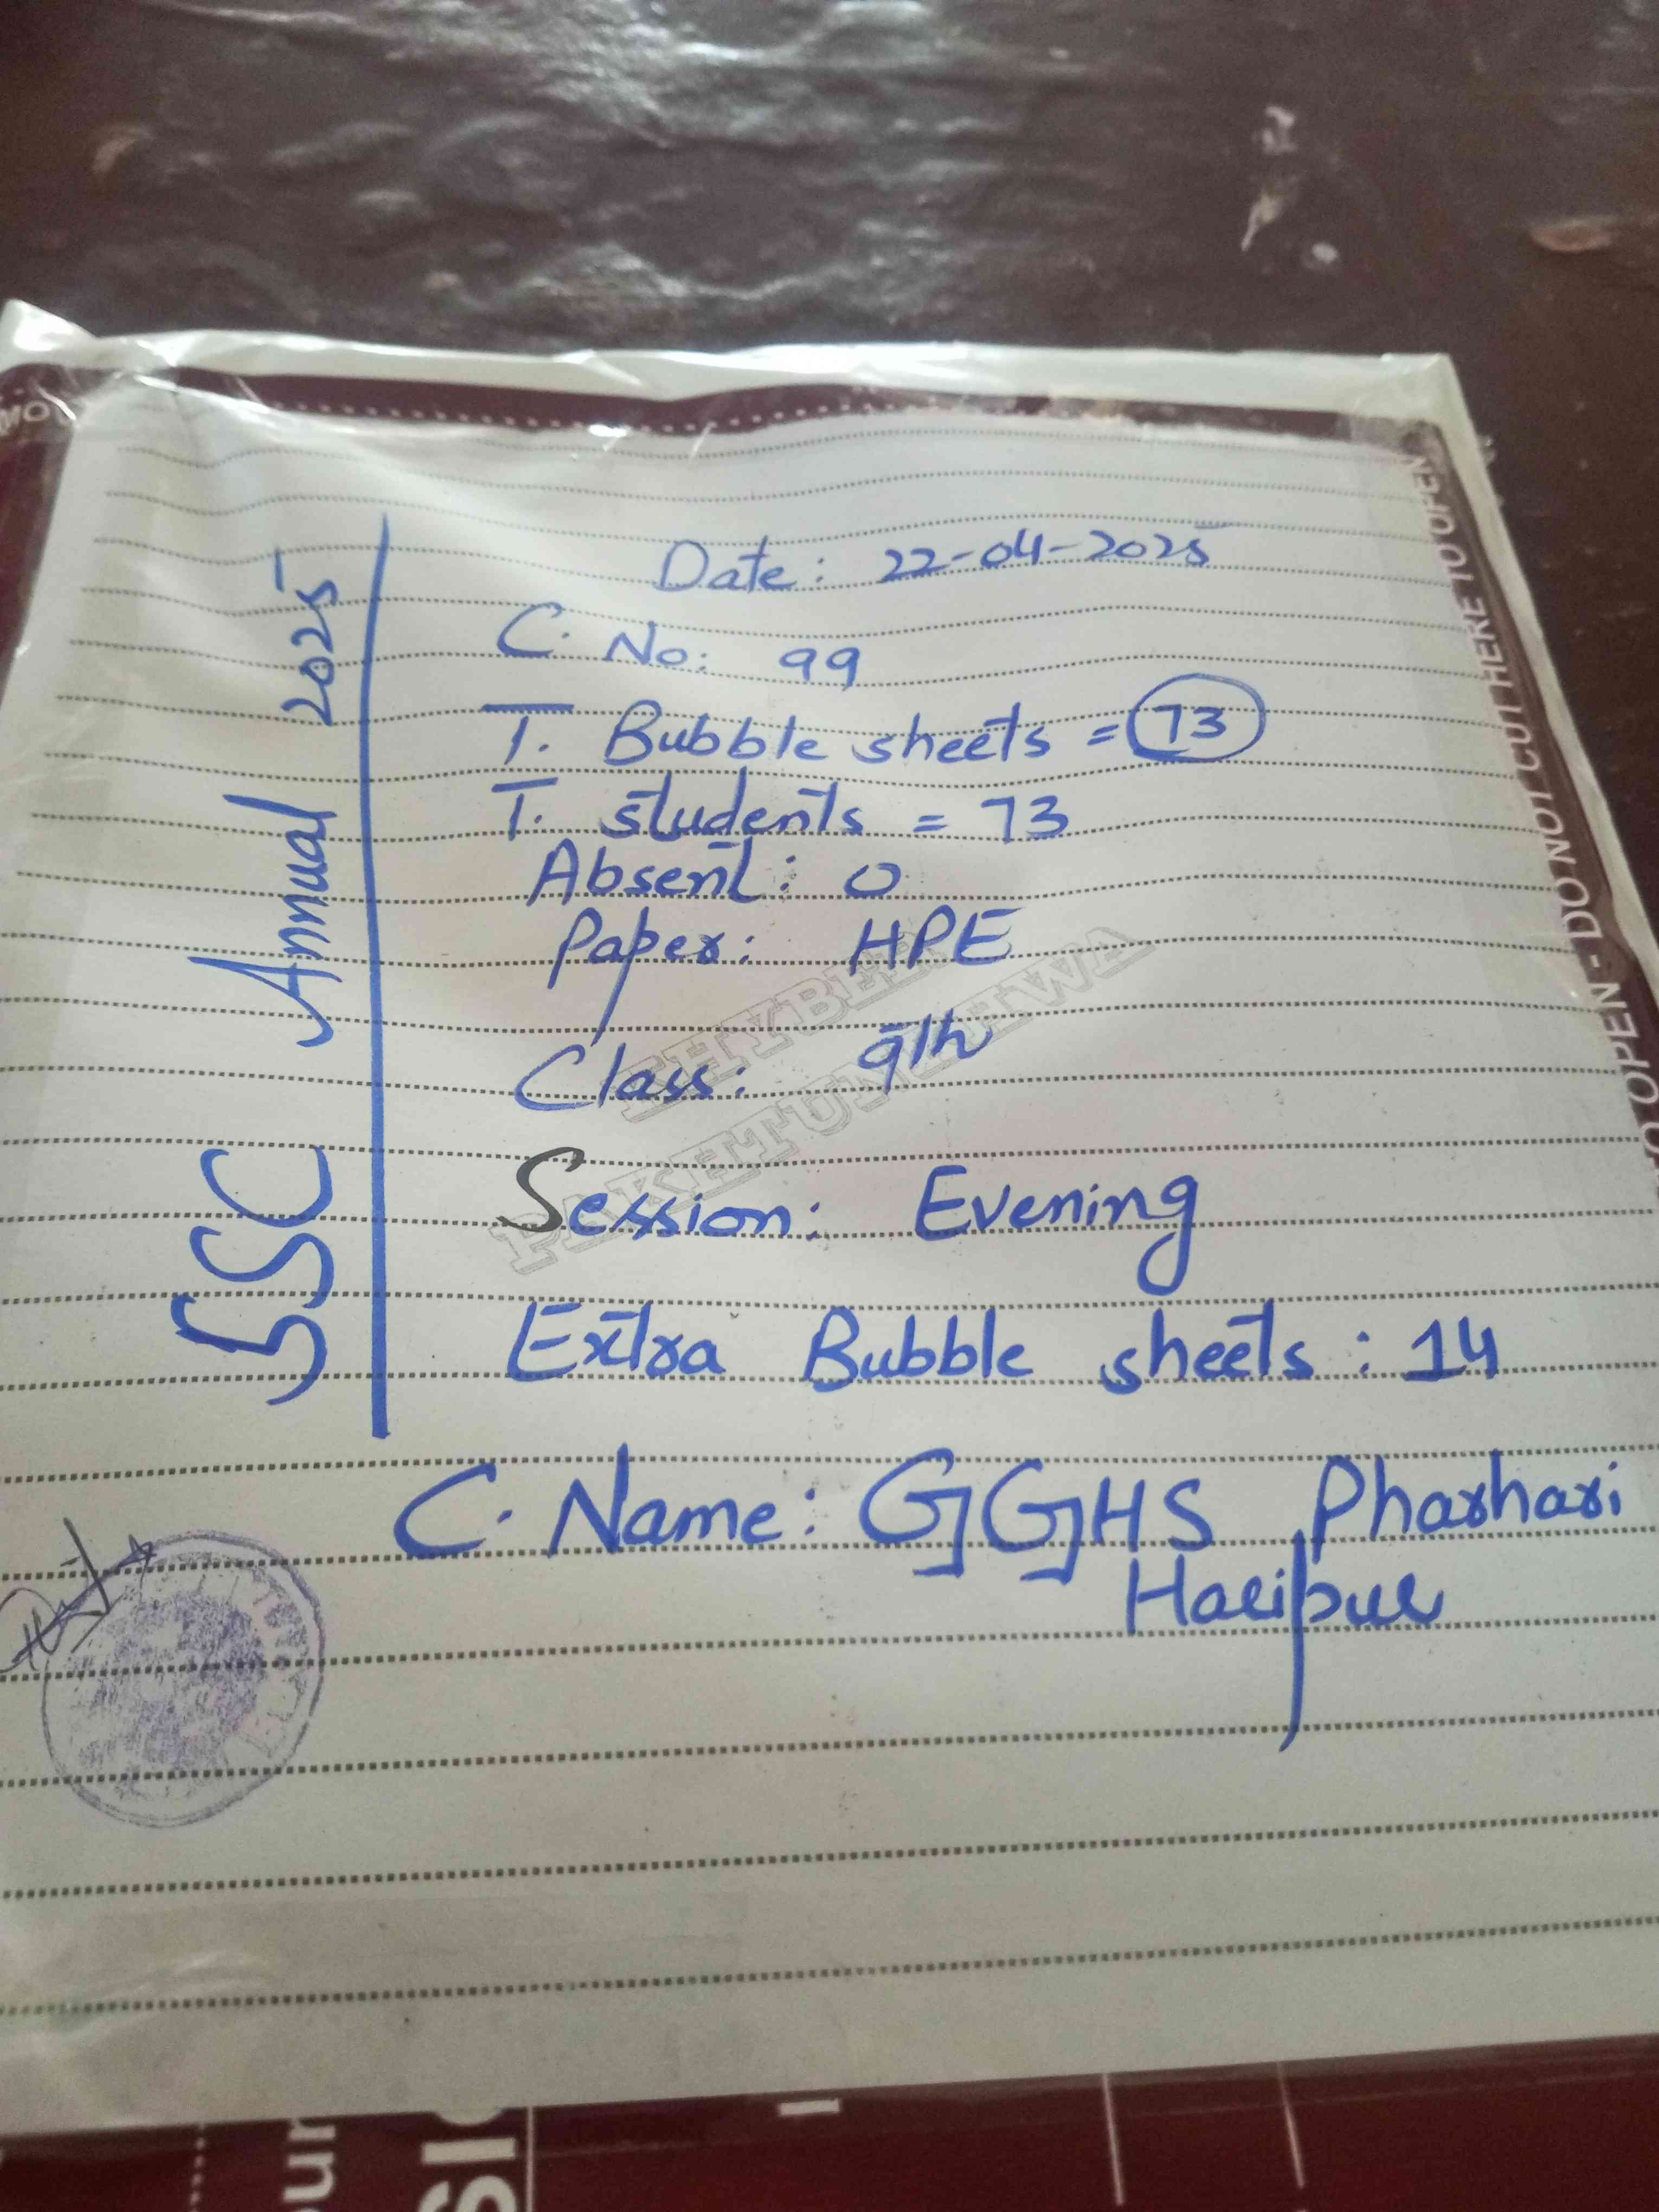 SSC Annual 2025
Date: 22-04-2025
C. No: 99
T. Bubble sheets = 73
T. students = 73
Absent: 0
Paper: HPE
Class: 9th
Session: Evening
Extra Bubble sheets: 14
C. Name: GGHS Pharhari
Haripur
KHYBER
PAKHTUNKHWA
DO NOT CUT HERE TO OPEN - DO NOT CUT HERE TO OPEN